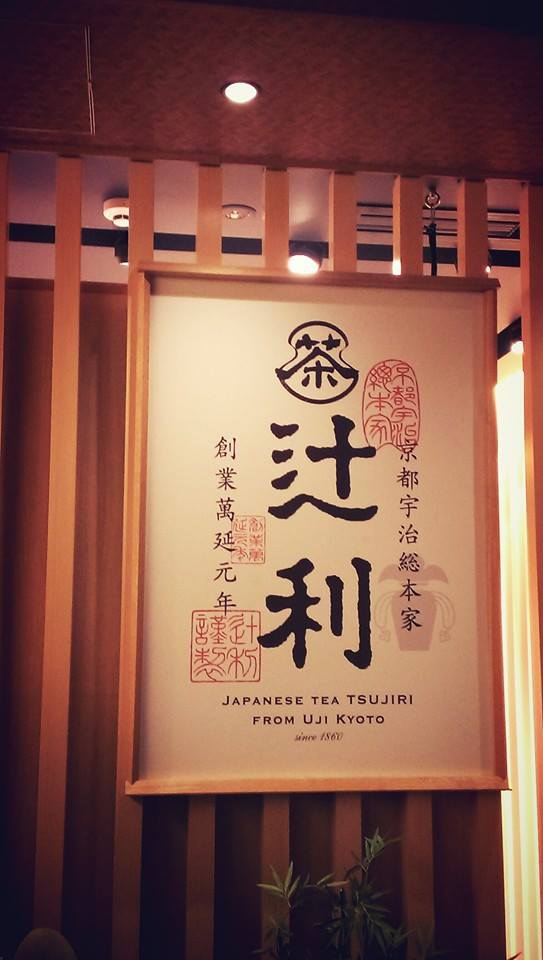 茶
京都宇治總本家
京都宇治総本家
辻利
創業萬延元年
創業萬延元年
辻利謹製
JAPANESE TEA TSUJIRI
FROM UJI KYOTO
since 1860